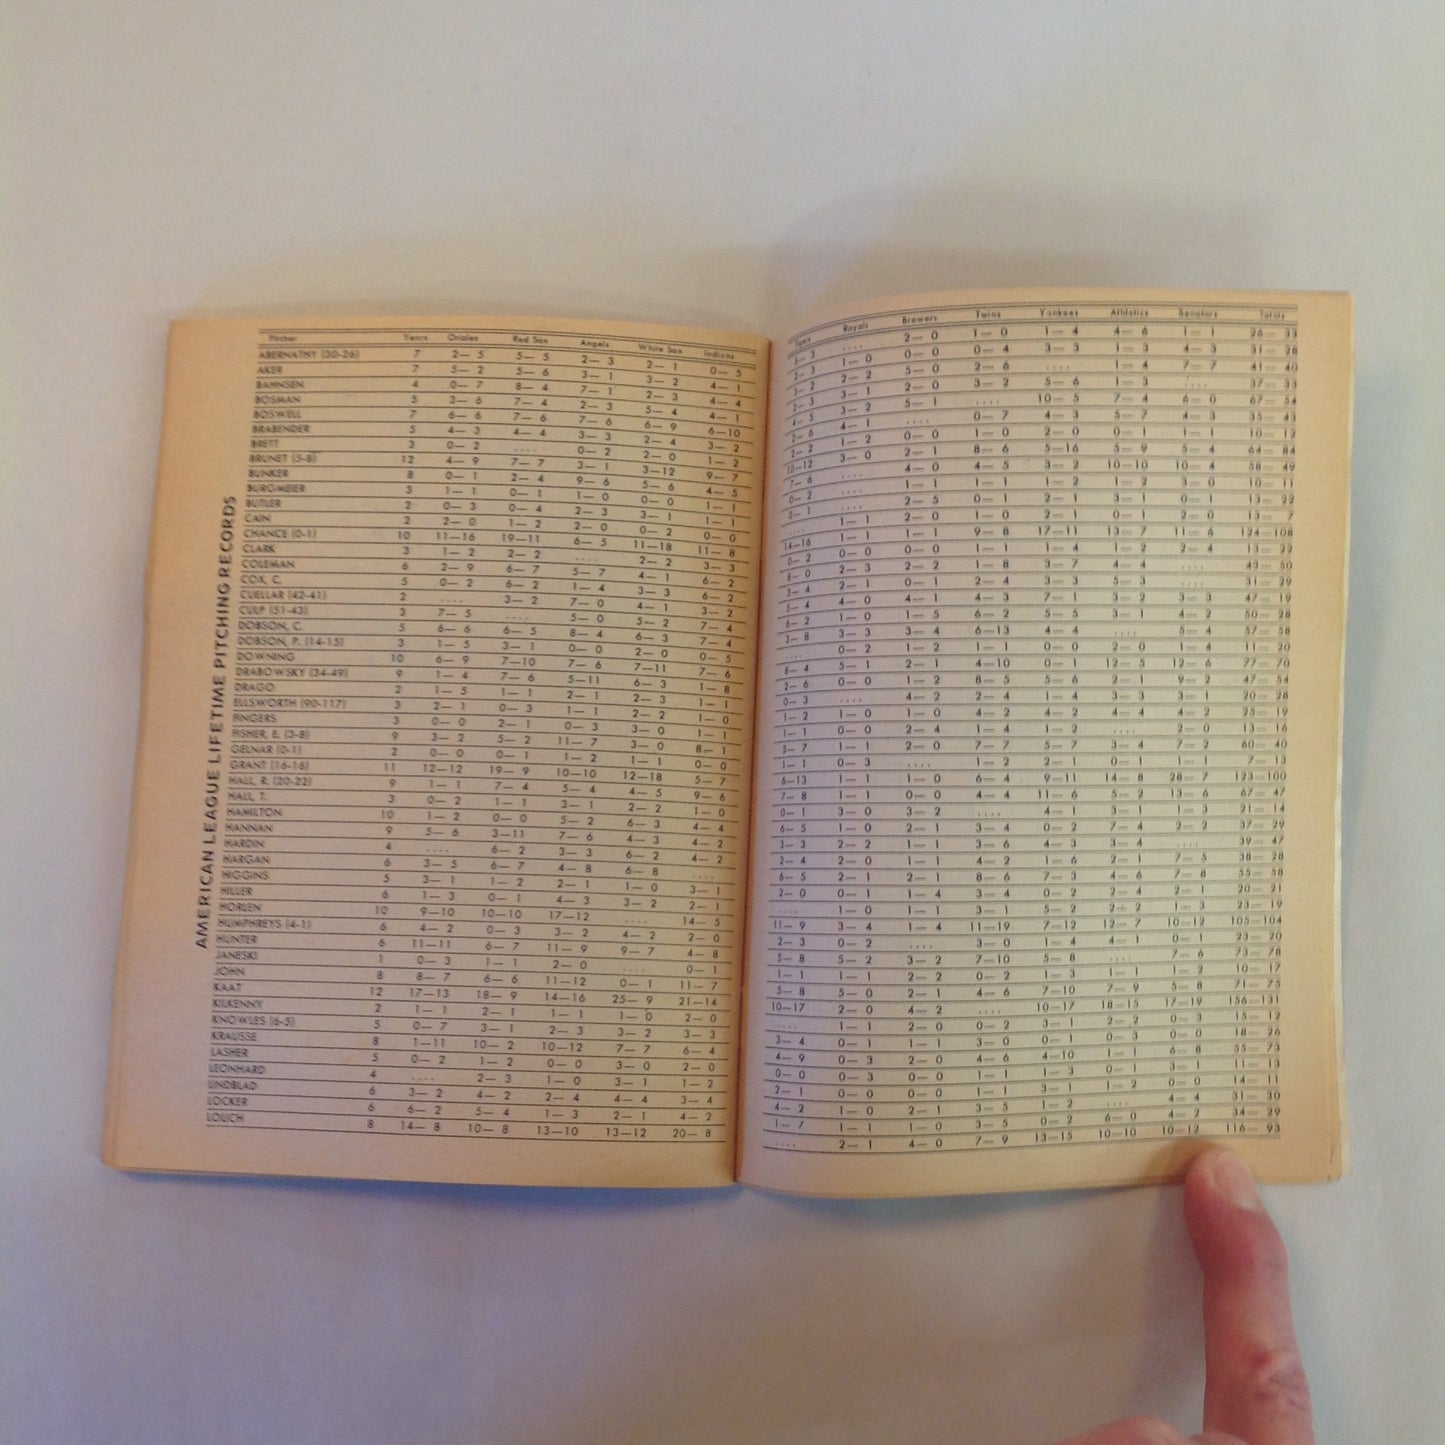 AMERICAN LEAGUE LIFETIME PITCHING RECORDS
Pitcher Years Orioles Red Sox Angels White Sox Indians
ABERNATHY (30-26) 7 2— 5 5— 5 2— 3 2— 1 0— 5
AKER 7 5— 2 5— 6 3— 1 3— 2 4— 1
BAHNSEN 4 0— 7 8— 4 7— 1 2— 3 4— 4
BOSMAN 5 3— 6 7— 4 2— 3 5— 4 4— 1
BOSWELL 7 6— 6 7— 6 7— 6 6— 9 6—10
BRABENDER 5 4— 3 4— 4 3— 3 2— 4 3— 2
BRETT 3 0— 2 .... 0— 2 2— 0 1— 2
BRUNET (5-8) 12 4— 9 7— 7 3— 1 3—12 9— 7
BUNKER 8 0— 1 2— 4 9— 6 5— 6 4— 5
BURGMEIER 3 1— 1 0— 1 1— 0 0— 0 1— 1
BUTLER 2 0— 3 0— 4 2— 3 3— 1 1— 1
CAIN 2 2— 0 1— 2 2— 0 0— 2 0— 0
CHANCE (0-1) 10 11—16 19—11 6— 5 11—18 11— 8
CLARK 3 1— 2 2— 2 .... 2— 2 3— 3
COLEMAN 6 2— 9 6— 7 5— 7 4— 1 6— 2
COX, C. 5 0— 2 6— 2 1— 4 3— 3 6— 2
CUELLAR (42-41) 2 .... 3— 2 7— 0 4— 1 3— 2
CULP (51-43) 3 7— 5 .... 5— 0 5— 2 7— 4
DOBSON, C. 5 6— 6 6— 5 8— 4 6— 3 7— 4
DOBSON, P. (14-15) 3 1— 5 3— 1 0— 0 2— 0 0— 5
DOWNING 10 6— 9 7—10 7— 6 7—11 7— 6
DRABOWSKY (34-49) 9 1— 4 7— 6 5—11 6— 3 1— 8
DRAGO 2 1— 5 1— 1 2— 1 2— 3 1— 1
ELLSWORTH (90-117) 3 2— 1 0— 3 1— 1 2— 2 1— 0
FINGERS 3 0— 0 2— 1 0— 3 3— 0 1— 1
FISHER, E. (3-8) 9 3— 2 5— 2 11— 7 3— 0 8— 1
GELNAR (0-1) 2 0— 0 0— 1 1— 2 1— 1 0— 0
GRANT (16-16) 11 12—12 19— 9 10—10 12—18 5— 7
HALL, R. (20-22) 9 1— 1 7— 4 5— 4 4— 5 9— 6
HALL, T. 3 0— 2 1— 1 3— 1 2— 2 1— 0
HAMILTON 10 1— 2 0— 0 5— 2 6— 3 4— 4
HANNAN 9 5— 6 3—11 7— 6 4— 3 4— 2
HARDIN 4 .... 6— 2 3— 3 6— 2 4— 2
HARGAN 6 3— 5 6— 7 4— 8 6— 8 ....
HIGGINS 5 3— 1 1— 2 2— 1 1— 0 3— 1
HILLER 6 1— 3 0— 1 4— 3 3— 2 2— 1
HORLEN 10 9—10 10—10 17—12 .... 14— 5
HUMPHREYS (4-1) 6 4— 2 0— 3 3— 2 4— 2 2— 0
HUNTER 6 11—11 6— 7 11— 9 9— 7 4— 8
JANESKI 1 0— 3 1— 1 2— 0 .... 0— 1
JOHN 8 8— 7 6— 6 11—12 0— 1 11— 7
KAAT 12 17—13 18— 9 14—16 25— 9 21—14
KILKENNY 2 1— 1 2— 1 1— 1 1— 0 2— 0
KNOWLES (6-5) 5 0— 7 3— 1 2— 3 3— 2 3— 3
KRAUSSE 8 1—11 10— 2 10—12 7— 7 6— 4
LASHER 5 0— 2 1— 2 0— 0 3— 0 2— 0
LEONHARD 4 .... 2— 3 1— 0 3— 1 1— 2
LINDBLAD 6 3— 2 4— 2 2— 4 4— 4 3— 4
LOCKER 6 6— 2 5— 4 1— 3 2— 1 4— 2
LOLICH 8 14— 8 10— 8 13—10 13—12 20— 8
Tigers Royals Brewers Twins Yankees Athletics Senators Totals
.... 2— 0 1— 0 1— 4 4— 6 1— 1 26— 33
2— 3 1— 0 0— 0 0— 4 3— 3 1— 3 4— 3 31— 28
3— 2 2— 2 5— 0 2— 6 .... 1— 4 7— 7 41— 40
2— 3 3— 1 2— 0 3— 2 5— 6 1— 3 .... 37— 33
4— 5 3— 2 5— 1 .... 10— 5 7— 4 6— 0 67— 54
2— 6 4— 1 .... 0— 7 4— 3 5— 7 4— 3 35— 43
2— 2 1— 2 0— 0 1— 0 2— 0 0— 1 1— 1 10— 12
10—12 3— 0 2— 1 8— 6 5—16 5— 9 5— 4 64— 84
7— 6 .... 4— 0 4— 5 3— 2 10—10 10— 4 58— 49
0— 2 .... 1— 1 1— 1 1— 2 1— 2 3— 0 10— 11
0— 1 .... 2— 5 0— 1 2— 1 3— 1 0— 1 13— 22
.... 1— 1 2— 0 1— 0 2— 1 0— 1 2— 0 13— 7
14—16 1— 1 1— 1 9— 8 17—11 13— 7 11— 6 124—108
0— 2 0— 0 0— 0 1— 1 1— 4 1— 2 2— 4 13— 22
8— 0 2— 3 2— 2 1— 8 3— 7 4— 4 .... 43— 50
3— 4 2— 1 0— 1 2— 4 3— 3 5— 3 .... 31— 29
5— 4 4— 0 4— 1 4— 3 7— 1 3— 2 3— 3 47— 19
6— 2 0— 1 1— 5 6— 2 5— 5 3— 1 4— 2 50— 28
3— 8 3— 3 3— 4 6—13 4— 4 .... 5— 4 57— 58
.... 0— 2 1— 2 1— 1 0— 0 2— 0 1— 4 11— 20
8— 4 5— 1 2— 1 4—10 0— 1 12— 5 12— 6 77— 70
2— 6 0— 0 1— 2 8— 5 5— 6 2— 1 9— 2 47— 54
0— 3 .... 4— 2 2— 4 1— 4 3— 3 3— 1 20— 28
1— 2 1— 0 1— 0 4— 2 4— 2 4— 4 4— 2 25— 19
1— 1 0— 0 2— 4 1— 4 1— 2 .... 2— 0 13— 16
5— 7 1— 1 2— 0 7— 7 5— 7 3— 4 7— 2 60— 40
1— 1 0— 3 .... 1— 2 2— 1 0— 1 1— 1 7— 13
6—13 1— 1 1— 0 6— 4 9—11 14— 8 28— 7 123—100
7— 8 1— 1 0— 0 4— 4 11— 6 5— 2 13— 6 67— 47
0— 1 3— 0 3— 2 .... 4— 1 3— 1 1— 3 21— 14
6— 5 1— 0 2— 1 3— 4 0— 2 7— 4 2— 2 37— 29
3— 3 2— 2 1— 1 3— 6 4— 3 3— 4 .... 39— 47
2— 4 2— 0 1— 1 4— 2 1— 6 2— 1 7— 5 38— 28
6— 5 2— 1 2— 1 8— 6 7— 3 4— 6 7— 8 55— 58
2— 0 0— 1 1— 4 3— 4 0— 2 2— 4 2— 1 20— 21
.... 1— 0 1— 1 3— 1 5— 2 2— 2 1— 3 23— 19
11— 9 3— 4 1— 4 11—19 7—12 12— 7 10—12 105—104
2— 3 0— 2 .... 3— 0 1— 4 4— 1 0— 1 23— 20
5— 8 5— 2 3— 2 7—10 5— 8 .... 7— 6 73— 78
1— 1 1— 1 2— 2 0— 2 1— 3 1— 1 1— 2 10— 17
5— 8 5— 0 2— 1 4— 6 7—10 7— 9 5— 8 71— 75
10—17 2— 0 4— 2 .... 10—17 18—15 17—19 156—131
.... 1— 1 2— 0 0— 2 3— 1 2— 2 0— 3 15— 12
3— 4 0— 1 1— 1 3— 0 0— 1 0— 3 0— 0 18— 26
4— 9 0— 3 2— 0 4— 6 4—10 1— 1 6— 8 55— 73
0— 0 0— 3 0— 0 1— 1 1— 3 0— 1 3— 1 11— 13
2— 1 0— 0 0— 0 1— 1 3— 1 1— 2 0— 0 14— 11
4— 2 1— 0 2— 1 3— 5 1— 2 .... 4— 4 31— 30
1— 7 1— 1 1— 0 3— 5 0— 2 6— 0 4— 2 34— 29
.... 2— 1 4— 0 7— 9 13—15 10—10 10—12 116— 93